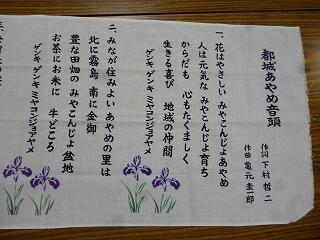 都城あやめ音頭
作詞 下村 哲二
作曲 亀元 圭一郎
一、花はやさしい みやこんじょあやめ
人は元気な みやこんじょ育ち
からだも 心もたくましく
生きる喜び 地域の仲間
ゲンキ ゲンキ ミヤコンジョアヤメ
二、みなが住みよい あやめの里は
北に霧島 南に金御
豊な田畑の みやこんじょ盆地
お茶にお米に 牛どころ
ゲンキ ゲンキ ミヤコンジョアヤメ